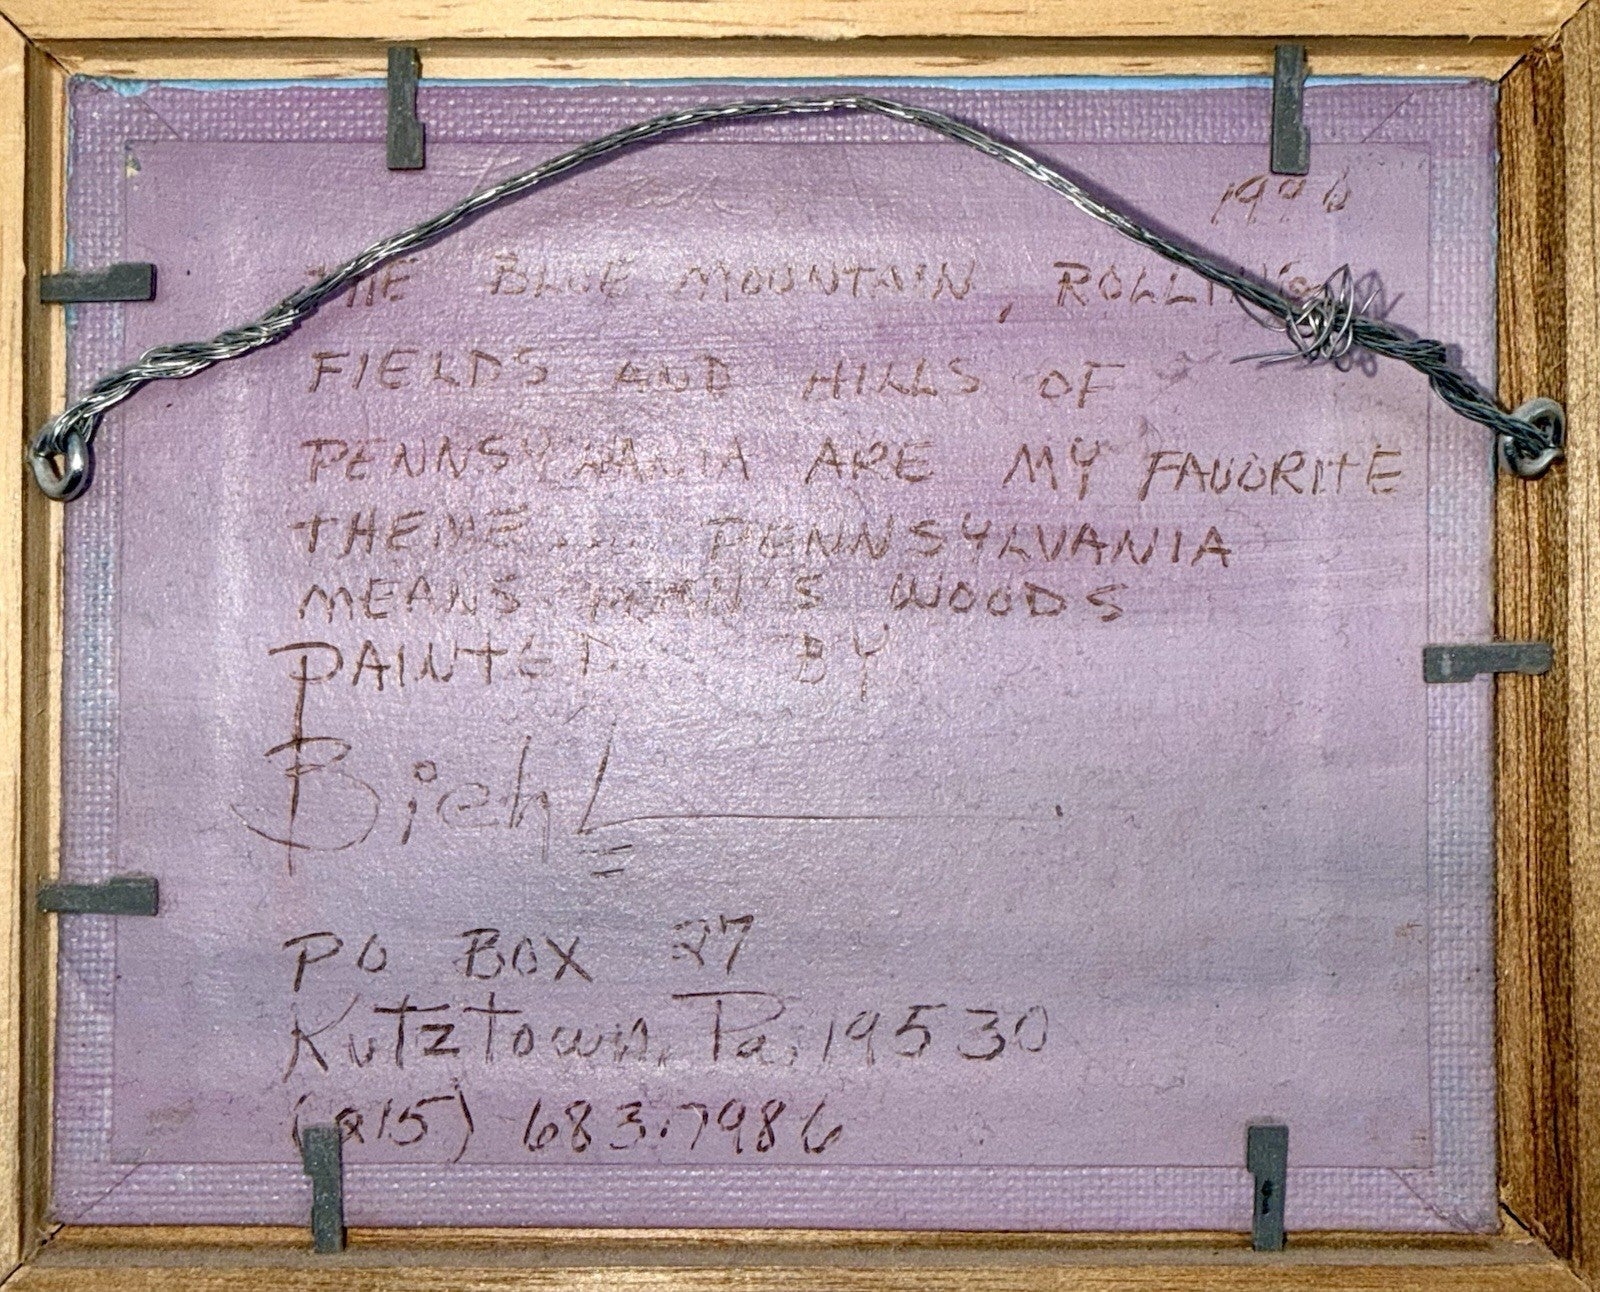 1996
THE BLUE MOUNTAIN, ROLLING
FIELDS AND HILLS OF
PENNSYLVANIA ARE MY FAVORITE
THEME... PENNSYLVANIA
MEANS PENN'S WOODS
PAINTED BY
BiehL
PO BOX 27
Kutztown, Pa. 19530
(215) 683.7986